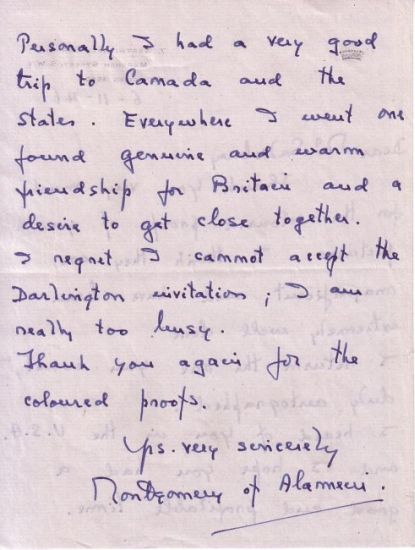 Personally I had a very good
trip to Canada and the
States. Everywhere I went one
found genuine and warm
friendship for Britain and a
desire to get close together.
I regret I cannot accept the
Darlington invitation; I am
really too busy.
Thank you again for the
coloured proofs.
Yrs. very sincerely
Montgomery of Alamein.